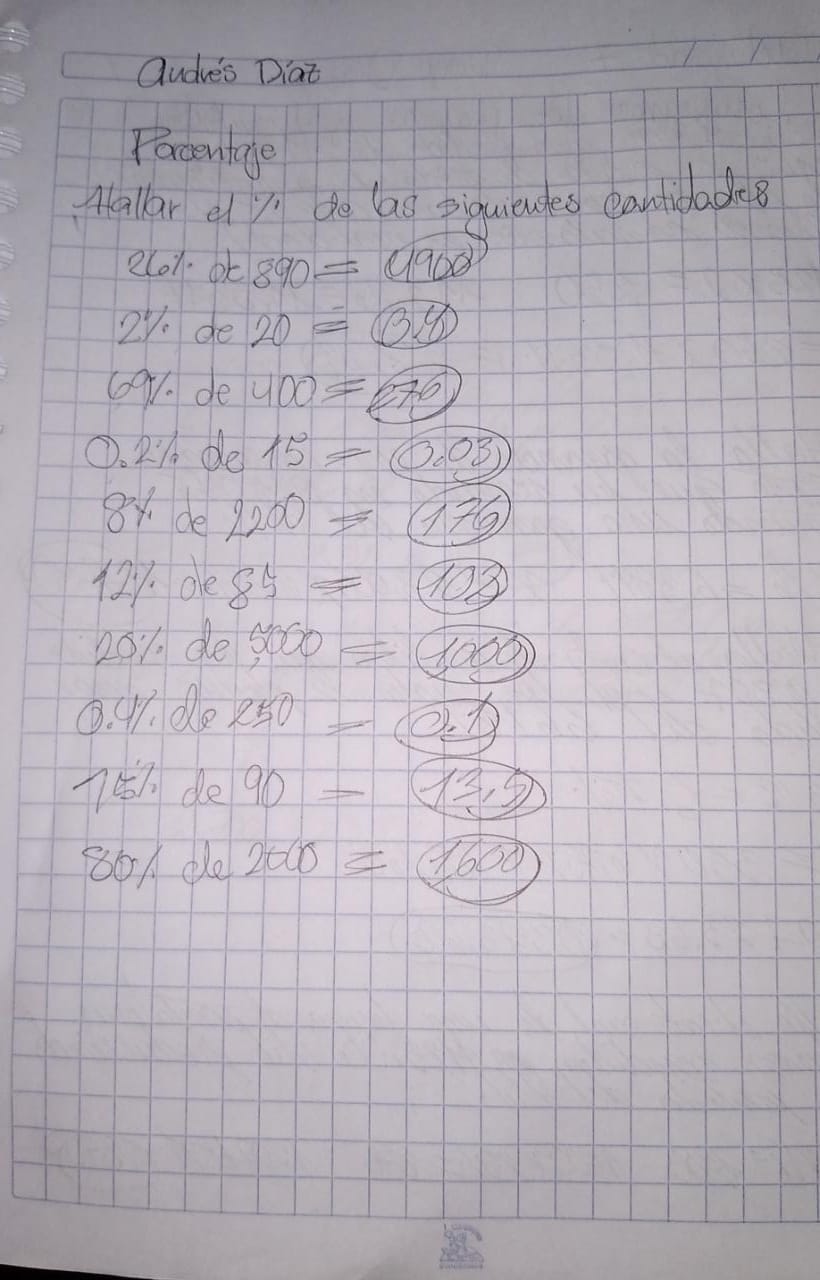 Andrés Díaz
Porcentaje
Hallar el % de las siguientes cantidades
26% de 890 = 4900
2% de 20 = 0.4
69% de 400 = 276
0.2% de 15 = 0.03
8% de 2200 = 176
12% de 85 = 102
20% de 5000 = 1000
0.4% de 250 = 0.1
15% de 90 = 13.5
80% de 2000 = 1600